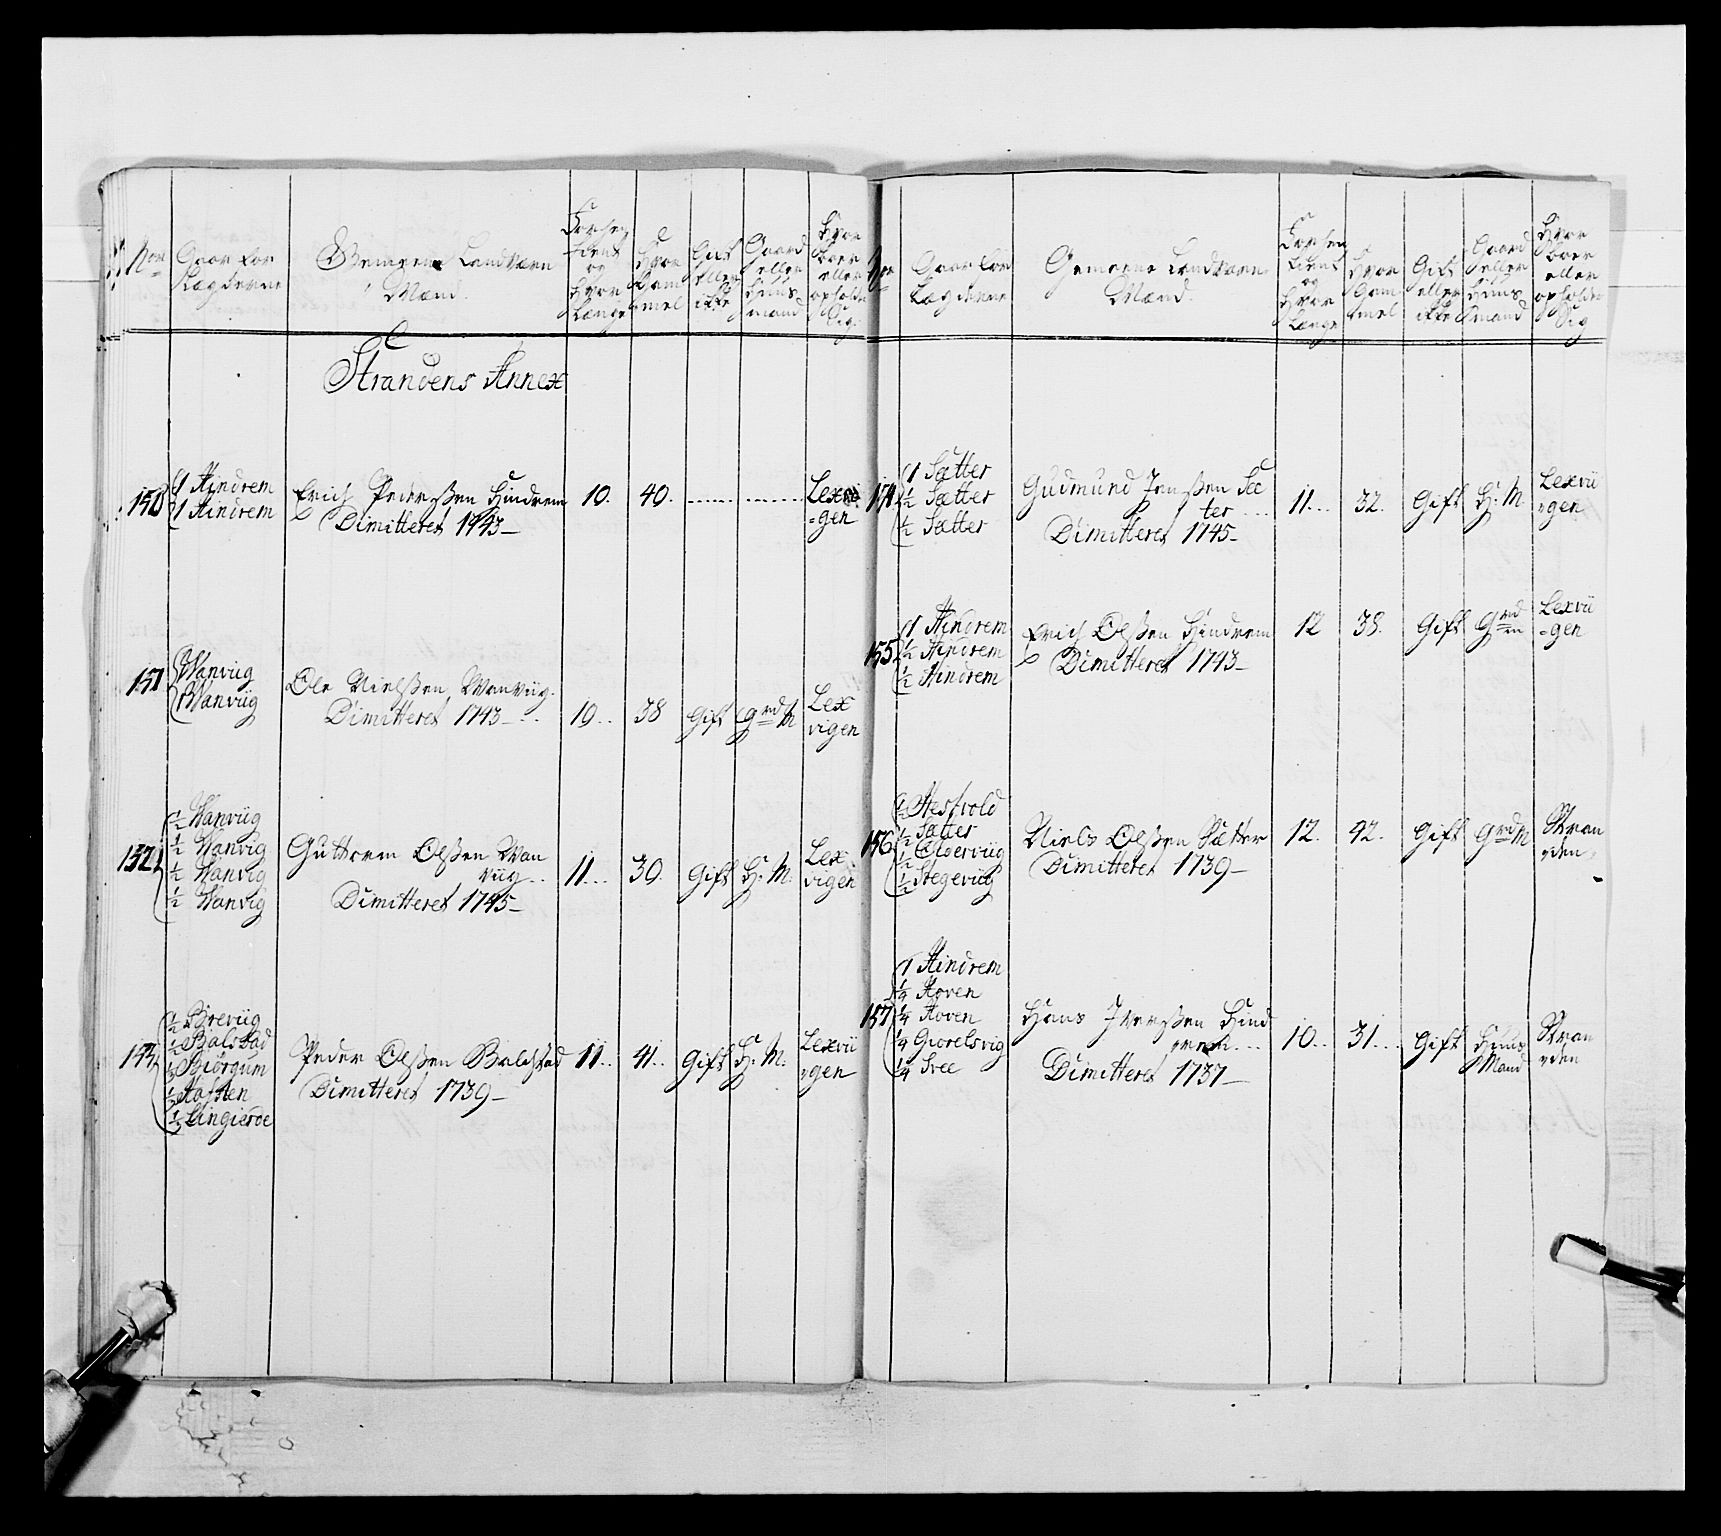 Nor
Gaar for
Lægderne
Gemeene Landværn
Mænd.
Forhen
tient
og
hvor
Længe
Hvor
Gam
mel
Gift
eller
ikke
Gaard
eller
Huus-
mand
Hvor
Boer
eller
opholder
Sig.
Strandens Annex
150
1 Hindrem
1 Hindrem
Erich Pederssen Hindrem
Dimitteret 1743-
10.
40.
Lexvii
=gen
151
Wanviig
Wanviig
Ole Nielssen Wanviig.
Dimitteret 1743-
10..
38
Gift
Grd M
Lex
vigen
152
½ Wanviig
½ Wanvig
½ Wanvig
½ Wanvig
Guttorm Olssen Wan
viig..
Dimitteret 1745-
11...
30.
Gift
H: M.
Lex
vigen
153
½ Breviig
½ Balstad
½ Biörgum
½ Haften
½ Lingieroe
Peder Olssen Balstad
Dimitteret 1739-
11..
41..
Gift
H: M:
Lexvii
=gen
Nor
Gaar for
Lægderne
Gemeene Landværn
Mænd.
Forhen
tient
og
hvor
Længe
Hvor
Gam
mel
Gift
eller
ikke
Gaard
eller
Huus-
mand
Hvor
Boer
eller
opholder
Sig
154
1 Sætter
½ Sætter
½ Sætter
Gudmund Jenssen See
ter...
Dimitteret 1745-
11...
32.
Gift
H: M.
Lexvii
=gen
155
1 Hindrem
½ Hindrem
½ Hindrem
Erich Olssen Hindrem
Dimitteret 1743-
12
38.
Gift
Grd m
Lexvii
=gen
156
½ Hestvold
½ Sætter
½ Olderviig
½ Stegeviig
Niels Olssen Sætter
Dimitteret 1739-
12.
42.
Gift
Grd M
Stran
=den
157
1 Hindrem
¼ Hoven
¼ Hoven
¼ Giorelsvig
¼ Svee
Hans Iverssen Hind
rem...
Dimitteret 1737-
10..
31...
Gift
Huus
Mand
Stran
=den